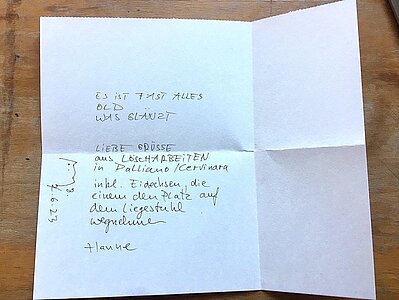 ES IST FAST ALLES
OLD
WAS GLÄNZT
LIEBE GRÜSSE
aus LÖSCHARBEITEN
in Dalliano/Cervinara
inkl. Eidechsen, die
einem den Platz auf
dem Liegestuhl
wegnehmen
Hanne
6.23